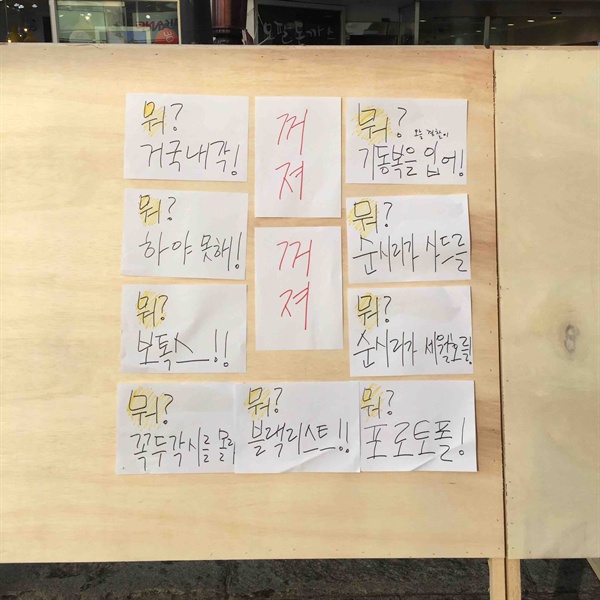 모판돈까스
뭐?
거국내각!
꺼
져
뭐? 오늘 경찰이
기동복을 입어!
뭐?
하야 못해!
뭐?
순시리가 사드를
꺼
져
뭐?
보톡스!!
뭐?
순시리가 세월호를!
뭐?
꼭두각시를 몰라
뭐?
블랙리스트!!
뭐?
포로토폴!